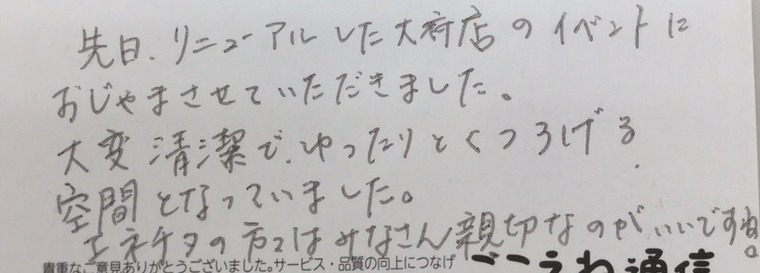 先日、リニューアルした大府店のイベントに
おじゃまさせていただきました。
大変清潔で、ゆったりとくつろげる
空間となっていました。
エネチタの方々はみなさん親切なのがいいですね。
貴重なご意見ありがとうございました。サービス・品質の向上につなげ
ごこうね通信